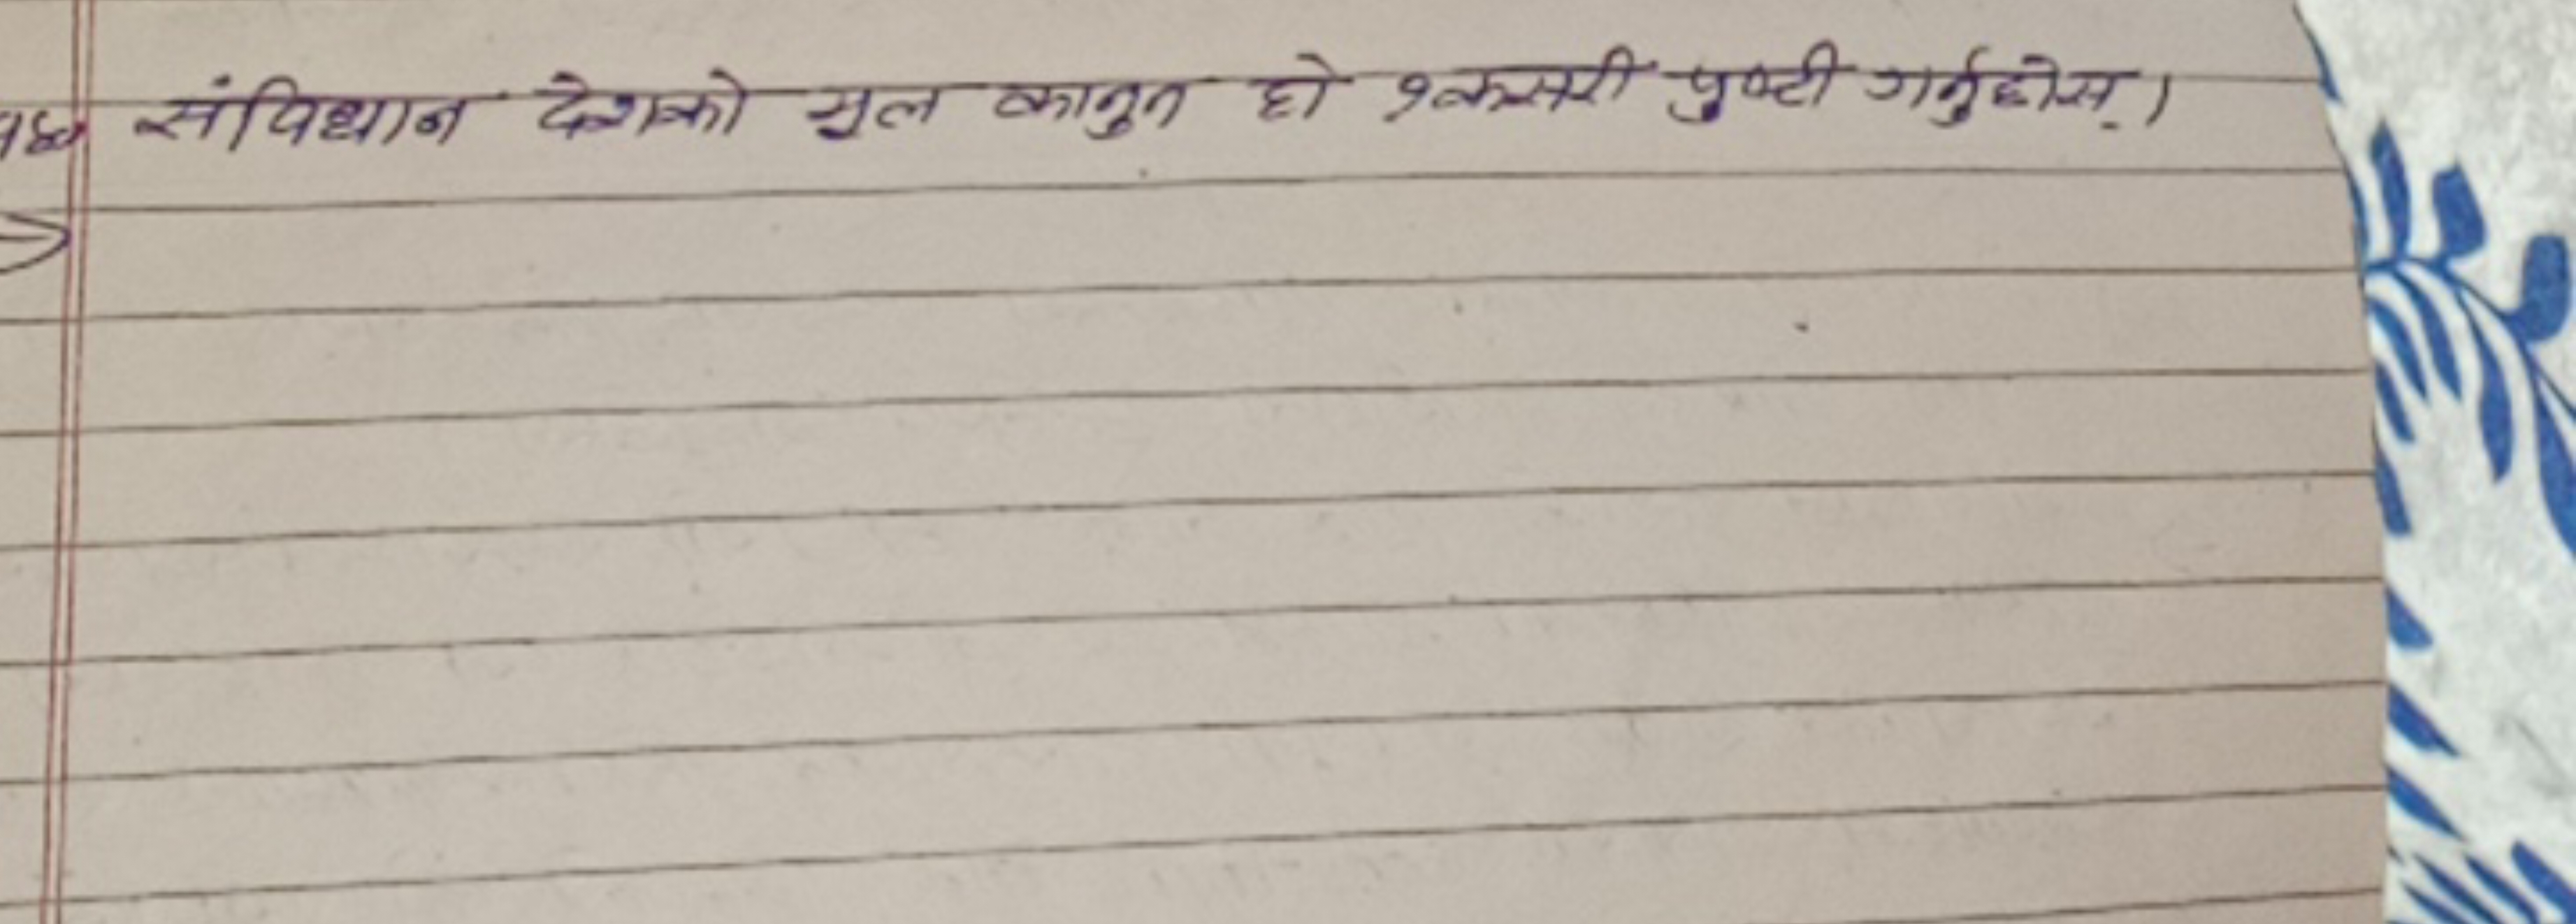 संविधान देशको मुल कानुन हो ? कसरी पुष्टी गर्नुहोस् ।